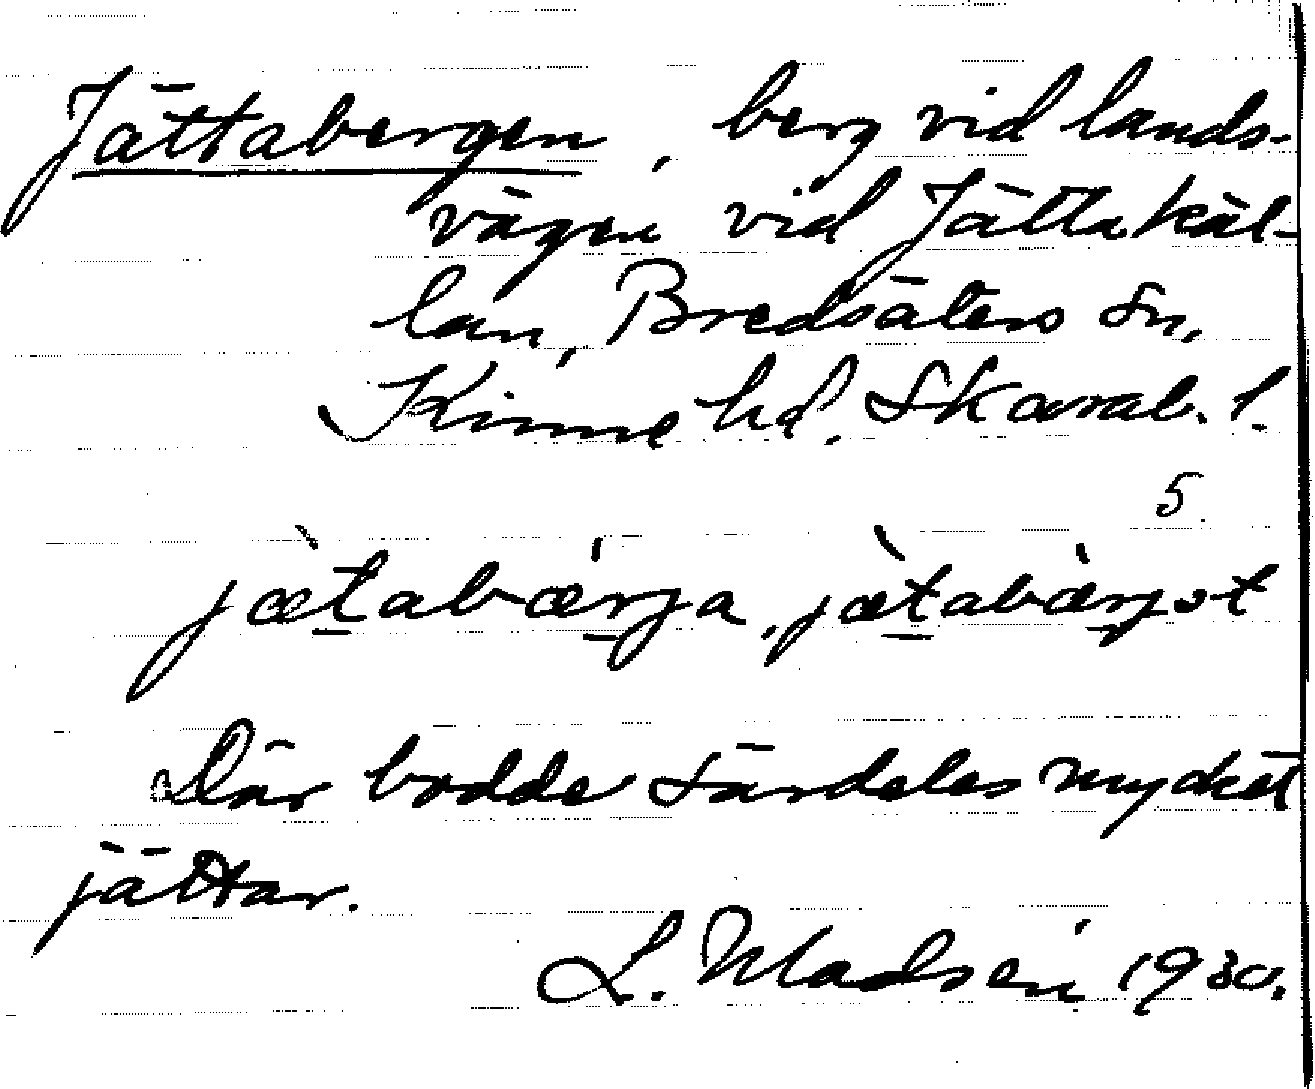 Jättabergen, berg vid lands-
vägen vid Jättakäl-
lan, Bredsäters sn,
Kinne hd. Skarab. l.
5.
jæ̀tabǽrja, jæ̀tabǽrjət
Där bodde särdeles mycket
jättar.
L. Madsén 1930.